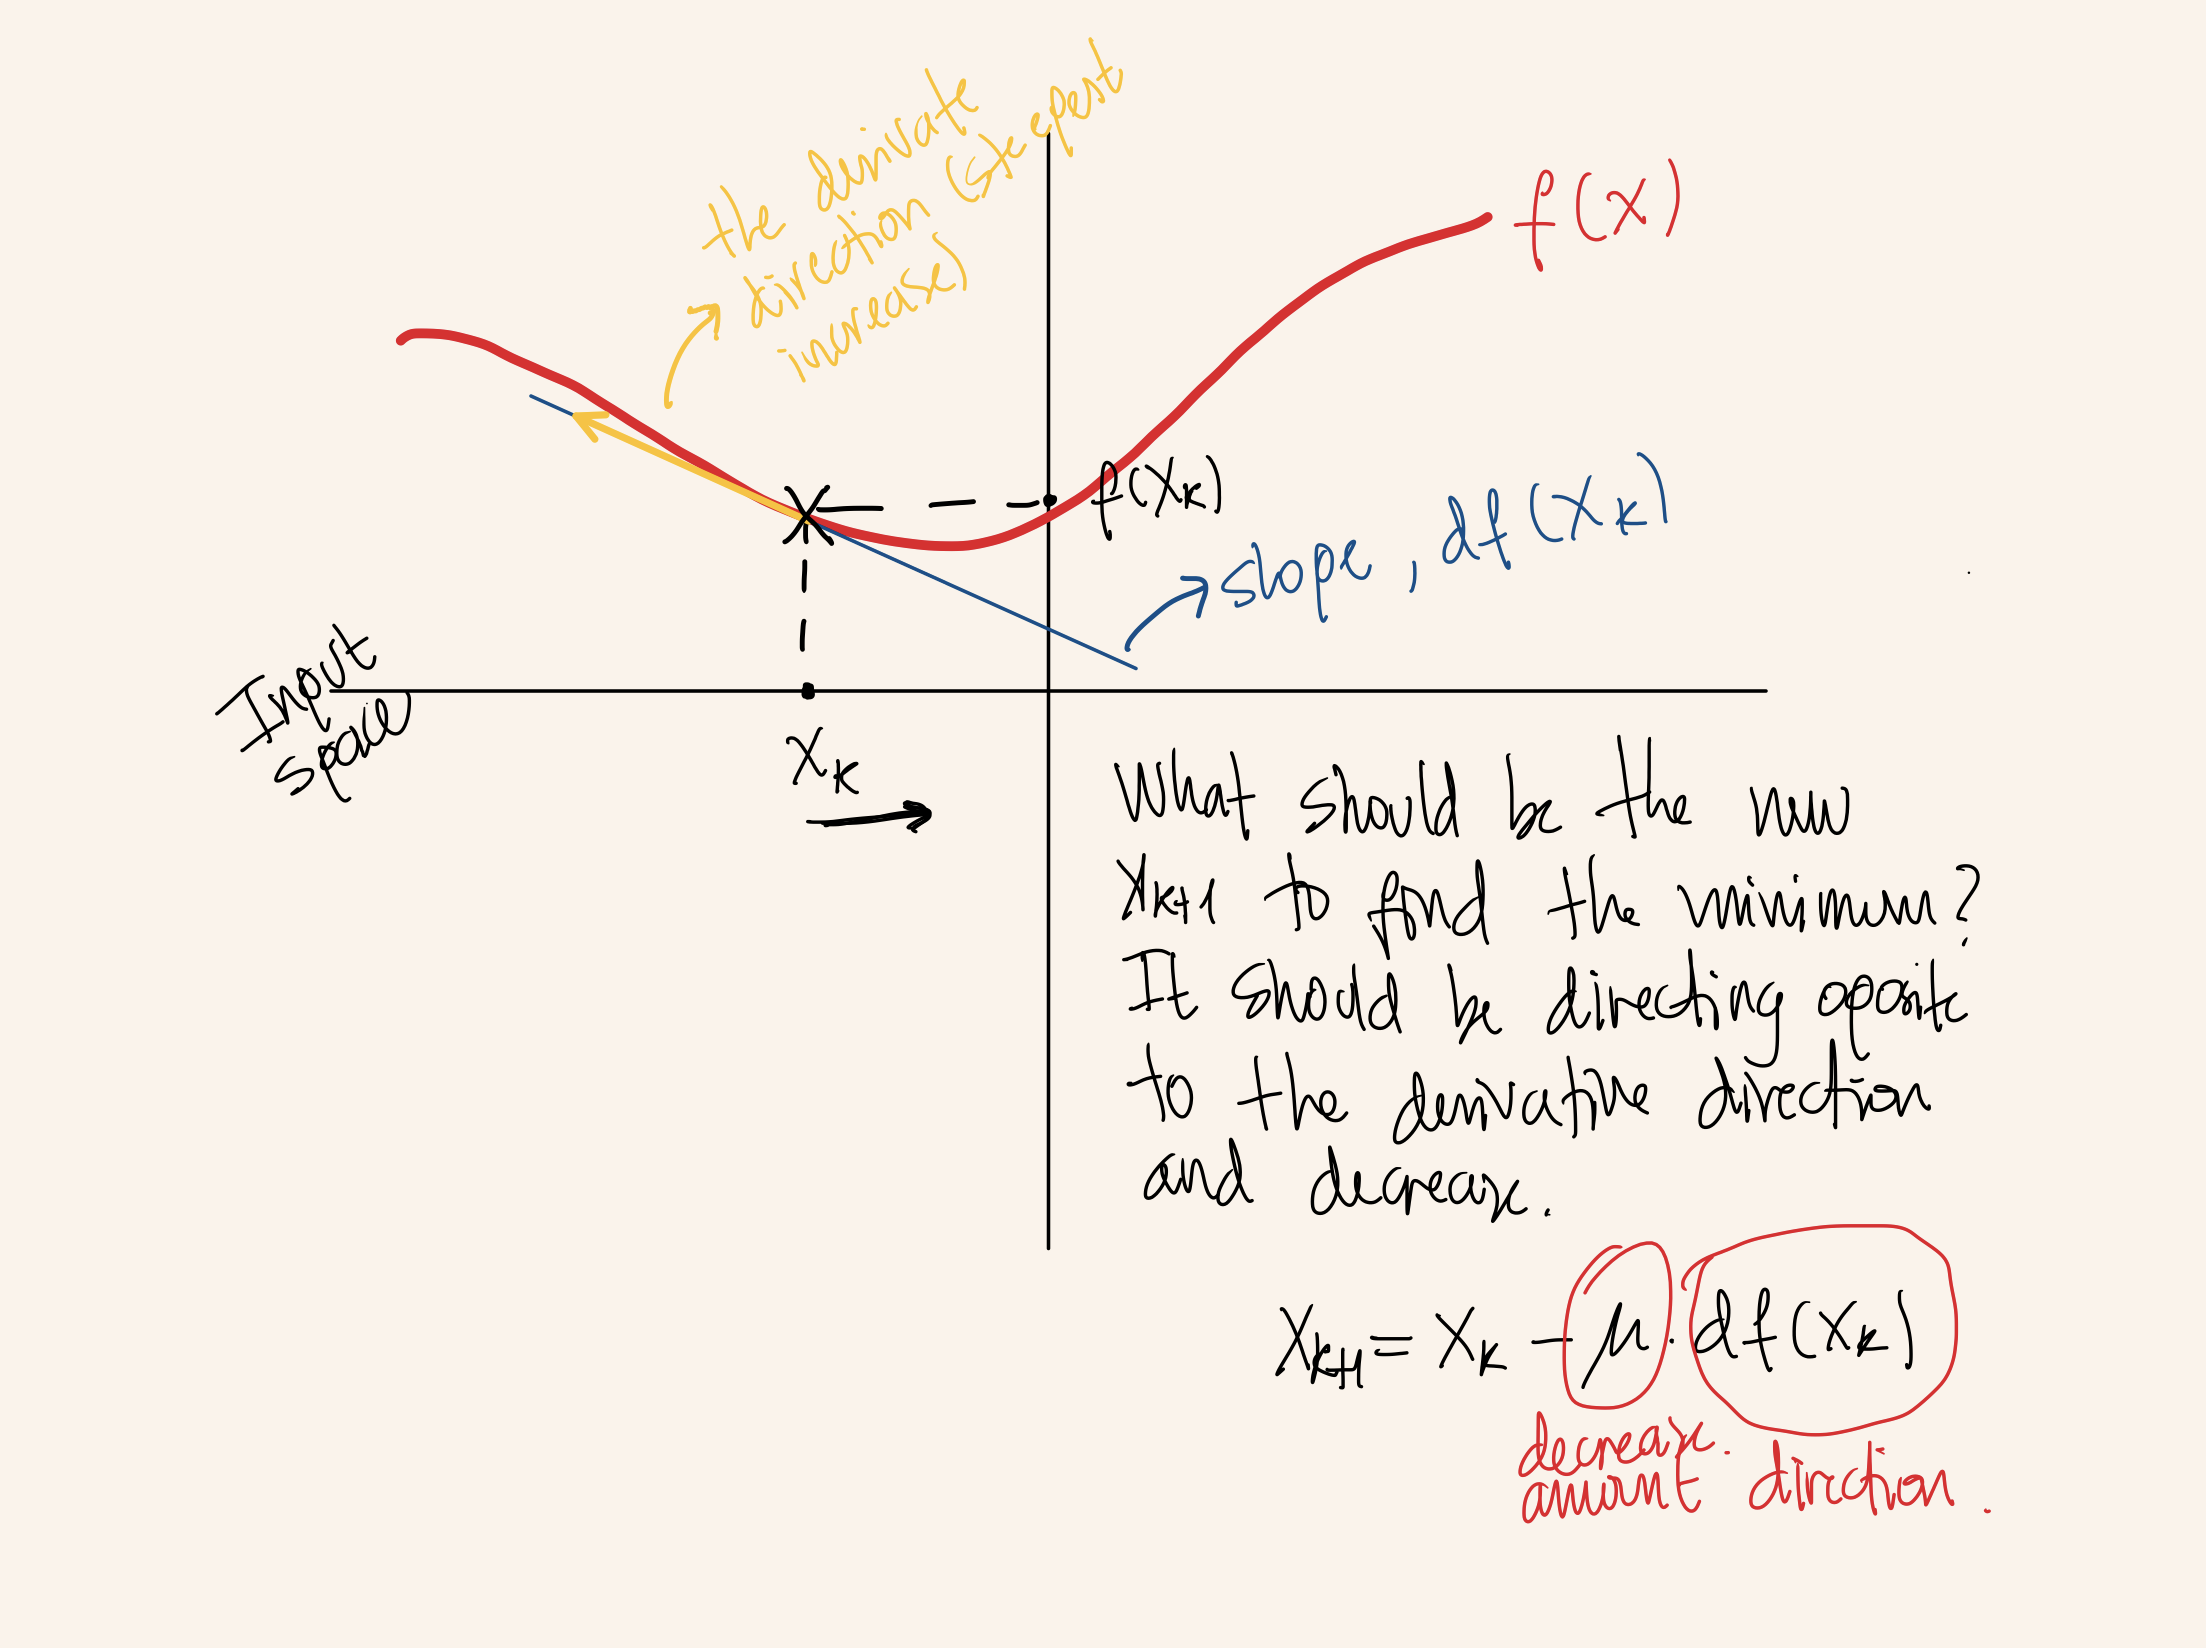 the derivate
direction (stepest
increase)
f(x)
f(xₖ)
slope, df(xₖ)
Input
space
xₖ
What should be the new
xₖ₊₁ to find the minimum?
It should be directing oposite
to the derivative direction
and decrease.
xₖ₊₁ = xₖ - µ . df(xₖ)
decrease. direction.
amount